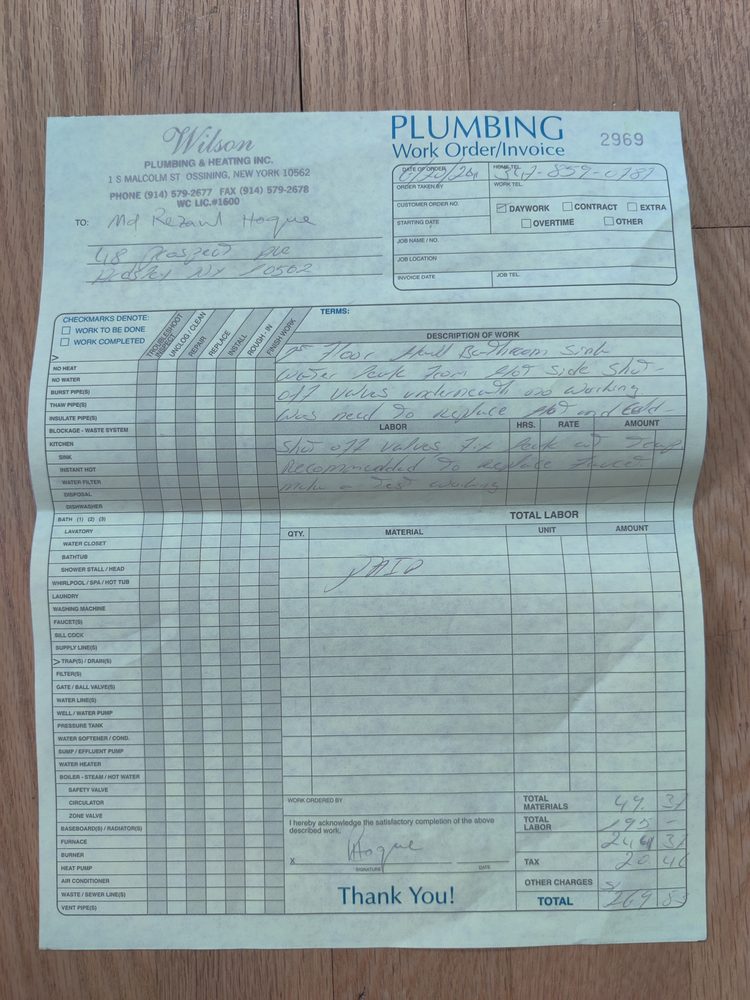 Wilson
PLUMBING & HEATING INC.
1 S MALCOLM ST OSSINING, NEW YORK 10562
PHONE (914) 579-2677 FAX (914) 579-2678
WC LIC.#1600
PLUMBING
Work Order/Invoice
2969
TO: Md Rezaul Hoque
48 Prospect Ave
NY 10562
DATE OF ORDER
HOME TEL.
ORDER TAKEN BY
WORK TEL.
CUSTOMER ORDER NO.
DAYWORK CONTRACT EXTRA
STARTING DATE
OVERTIME OTHER
JOB NAME / NO.
JOB LOCATION
INVOICE DATE
JOB TEL.
CHECKMARKS DENOTE:
WORK TO BE DONE
WORK COMPLETED
TROUBLESHOOT
INSPECT
UNCLOG / CLEAN
REPAIR
REPLACE
INSTALL
ROUGH - IN
FINISH WORK
NO HEAT
NO WATER
BURST PIPE(S)
THAW PIPE(S)
INSULATE PIPE(S)
BLOCKAGE - WASTE SYSTEM
KITCHEN
SINK
INSTANT HOT
WATER FILTER
DISPOSAL
DISHWASHER
BATH (1) (2) (3)
LAVATORY
WATER CLOSET
BATHTUB
SHOWER STALL / HEAD
WHIRLPOOL / SPA / HOT TUB
LAUNDRY
WASHING MACHINE
FAUCET(S)
SILL COCK
SUPPLY LINE(S)
TRAP(S) / DRAIN(S)
FILTER(S)
GATE / BALL VALVE(S)
WATER LINE(S)
WELL / WATER PUMP
PRESSURE TANK
WATER SOFTENER / COND.
SUMP / EFFLUENT PUMP
WATER HEATER
BOILER - STEAM / HOT WATER
SAFETY VALVE
CIRCULATOR
ZONE VALVE
BASEBOARD(S) / RADIATOR(S)
FURNACE
BURNER
HEAT PUMP
AIR CONDITIONER
WASTE / SEWER LINE(S)
VENT PIPE(S)
TERMS:
DESCRIPTION OF WORK
Floor Hall Bathroom Sink
water leak from Hot Side Shut-
off valves underneath no working
was need to replace Hot and Cold
LABOR HRS. RATE AMOUNT
Shut off valves fix leak at
Recommended to replace faucet
make a test working
TOTAL LABOR
QTY. MATERIAL UNIT AMOUNT
PAID
WORK ORDERED BY
I hereby acknowledge the satisfactory completion of the above
described work.
X Hoque
SIGNATURE DATE
Thank You!
TOTAL MATERIALS 49 31
TOTAL LABOR 195 -
244 31
TAX 20 46
OTHER CHARGES
TOTAL $